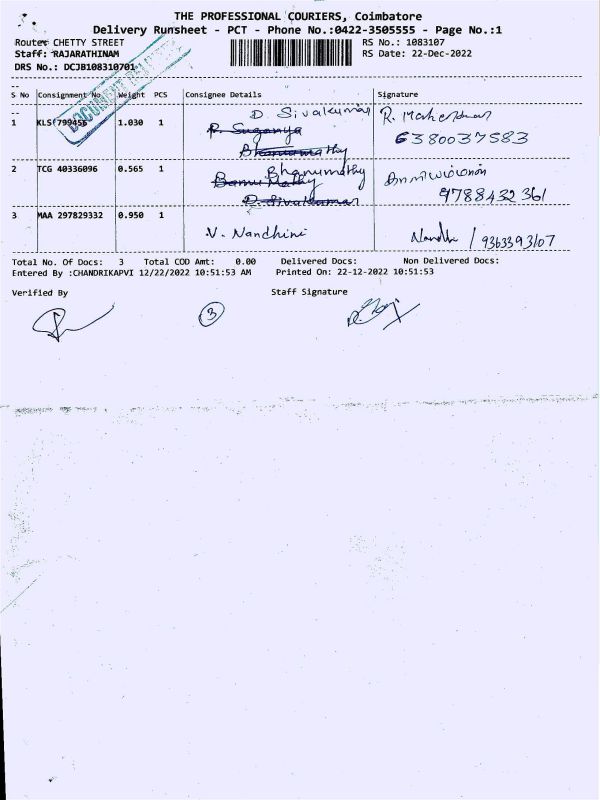 THE PROFESSIONAL COURIERS, Coimbatore
Delivery Runsheet - PCT - Phone No.:0422-3505555 - Page No.:1
Route: CHETTY STREET
RS No.: 1083107
Staff: RAJARATHINAM
RS Date: 22-Dec-2022
DRS No.: DCJB108310701
DOCUMENT
S No Consignment No Weight PCS Consignee Details Signature
D. Sivakumar
1 1.030 1
P. Suganya
6380037583
2 TCG 40336096 0.565 1 Bhanumathy
9788432361
D. Sivakumar
3 MAA 297829332 0.950 1
V. Nandhini
Total No. Of Docs: 3 Total COD Amt: 0.00 Delivered Docs: Non Delivered Docs:
Entered By :CHANDRIKAPVI 12/22/2022 10:51:53 AM Printed On: 22-12-2022 10:51:53
Verified By Staff Signature
3